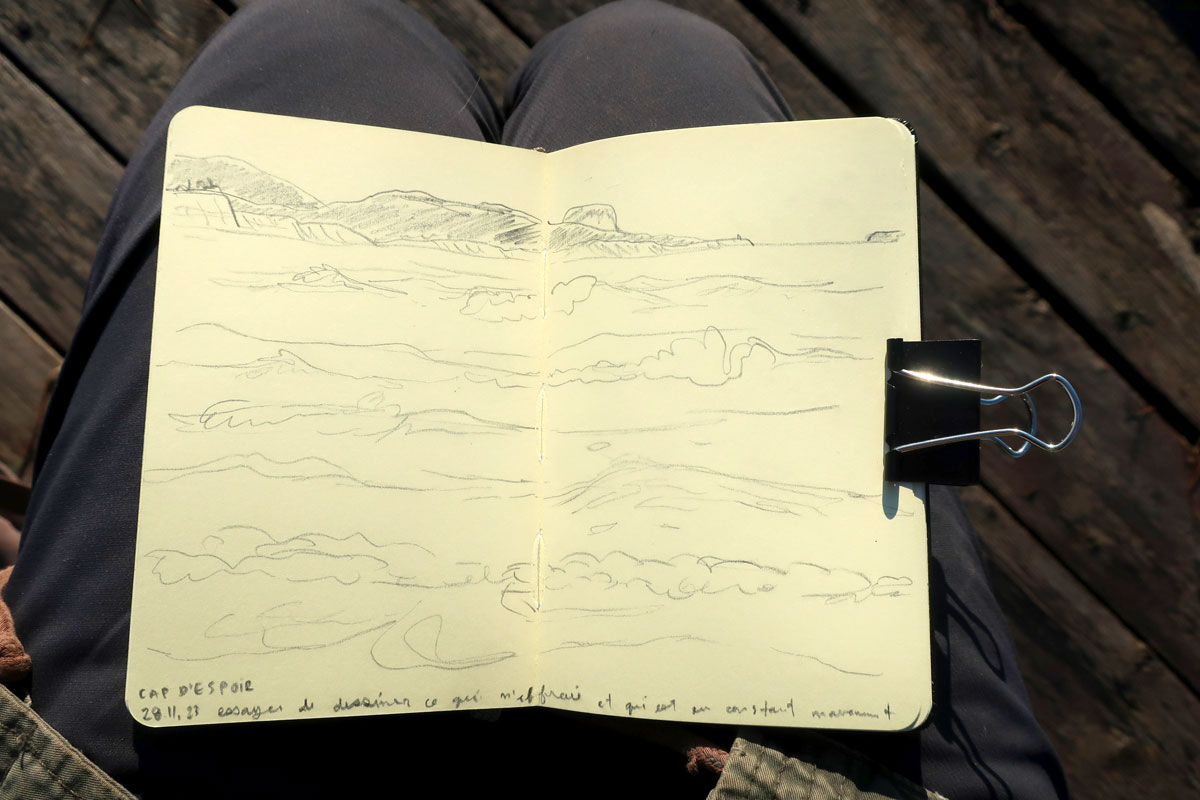 CAP D'ESPOIR
28.11.23 essayer de dessiner ce qui m'effraie et qui est en constant mouvement